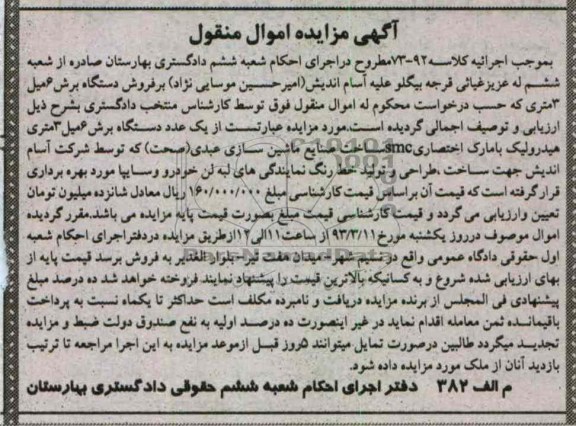 آگهی مزایده اموال منقول
بموجب اجرائیه کلاسه ۹۲-۷۳مطروح دراجرای احکام شعبه ششم دادگستری بهارستان صادره از شعبه
ششم له عزیزغیائی قرجه بیگلو علیه آسام اندیش(امیرحسین موسایی نژاد) برفروش دستگاه برش۶میل
۳متری که حسب درخواست محکوم له اموال منقول فوق توسط کارشناس منتخب دادگستری بشرح ذیل
ارزیابی و توصیف اجمالی گردیده است.مورد مزایده عبارتست از یک عدد دستگاه برش۶میل۳متری
هیدرولیک بامارک اختصاریsmcساخت صنایع ماشین سازی عبدی(صحت) که توسط شرکت آسام
اندیش جهت ساخت ،طراحی و تولید خط رنگ نمایندگی های لبه لن خودرو وسایپا مورد بهره برداری
قرارگرفته است که قیمت آن براساس قیمت کارشناسی مبلغ ۱۶۰/۰۰۰/۰۰۰ ریال معادل شانزده میلیون تومان
تعیین وارزیابی می گردد و قیمت کارشناسی قیمت مبلغ بصورت قیمت پایه مزایده می باشد.مقرر گردیده
اموال موصوف درروز یکشنبه مورخ۹۳/۳/۱۱ از ساعت۱۱الی۱۲ازطریق مزایده دردفتراجرای احکام شعبه
اول حقوقی دادگاه عمومی واقع درنسیم شهر- میدان هفت تیر- بلوار الغدیر به فروش برسد قیمت پایه از
بهای ارزیابی شده شروع و به کسانیکه بالاترین قیمت را پیشنهاد نمایند فروخته خواهد شد ده درصد مبلغ
پیشنهادی فی المجلس از برنده مزایده دریافت و نامبرده مکلف است حداکثر تا یکماه نسبت به پرداخت
باقیمانده ثمن معامله اقدام نماید در غیر اینصورت ده درصد اولیه به نفع صندوق دولت ضبط و مزایده
تجدید میگردد طالبین درصورت تمایل میتوانند ۵روز قبل ازموعد مزایده به این اجرا مراجعه تا ترتیب
بازدید آنان از ملک مورد مزایده داده شود.
م الف ۳۸۲ دفتر اجرای احکام شعبه ششم حقوقی دادگستری بهارستان